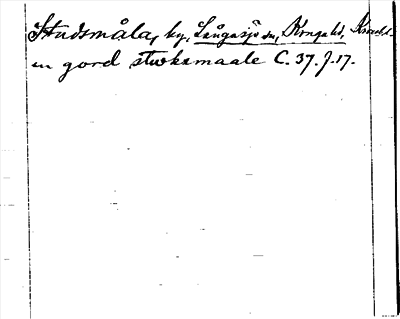 Studsmåla, by, Långasjö sn, Konga hd, Kronob.
en gord stwksmaale C. 37. J. 17.